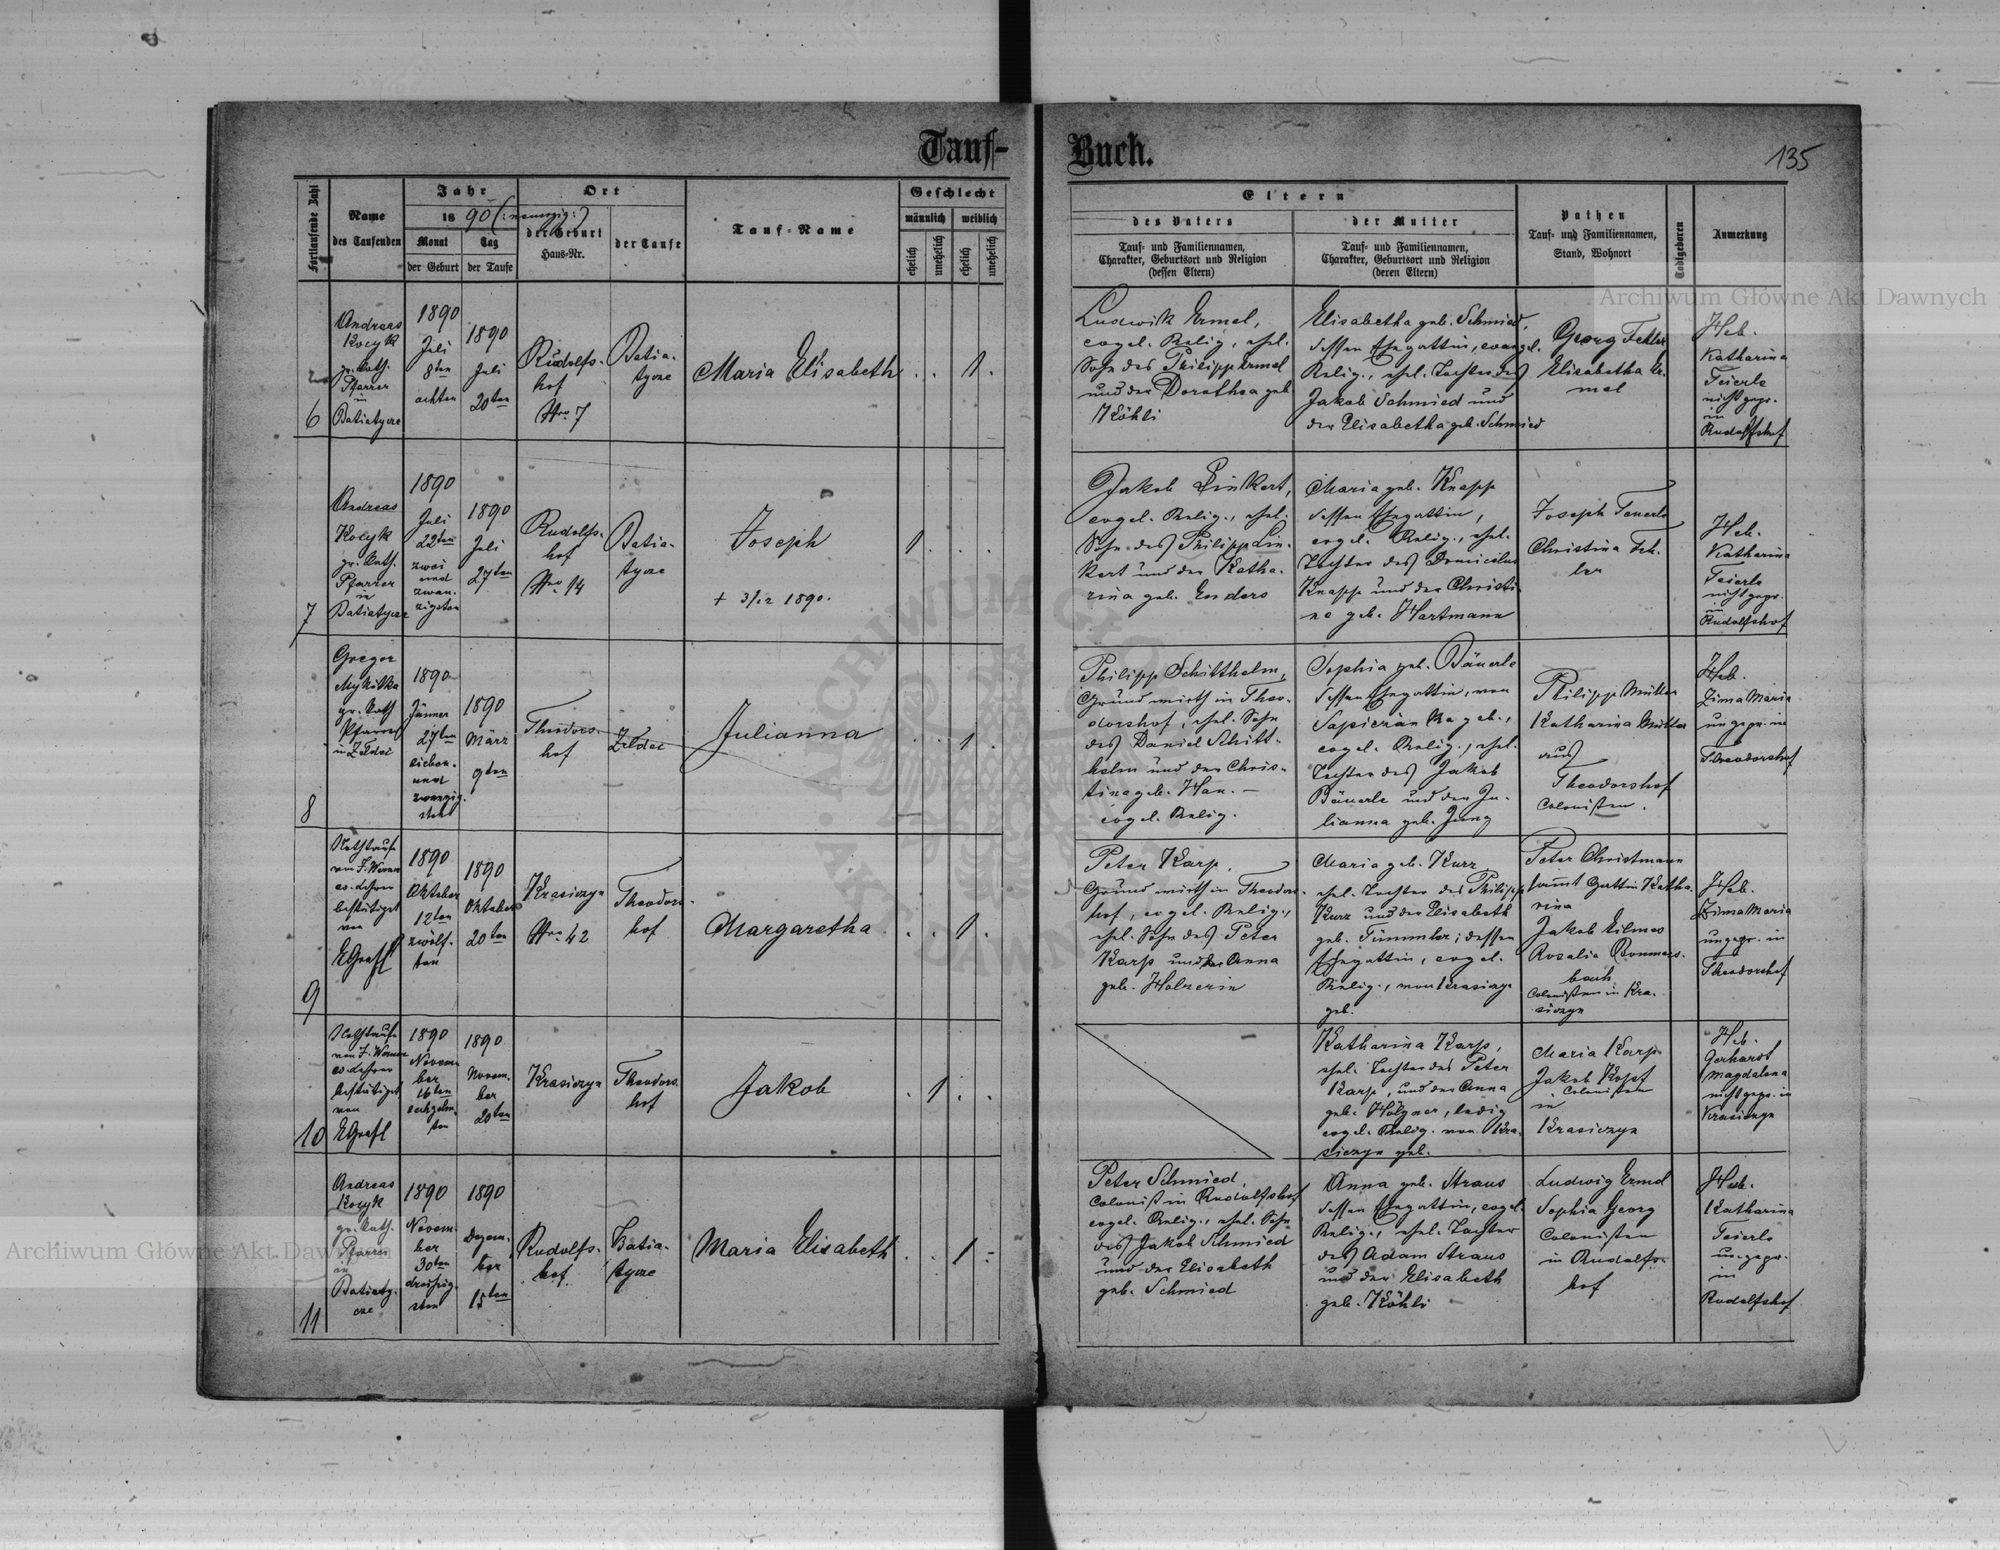 Tauf-
Buch.
135
Fortlaufende Zahl
Name
des Taufenden
Jahr
18 90 (:neunzig:)
Monat
der Geburt
Tag
der Taufe
Ort
der Geburt
Haus-Nr.
der Taufe
Tauf-Name
Geschlecht
männlich
weiblich
ehelich
unehelich
ehelich
unehelich
Eltern
des Vaters
Tauf- und Familiennamen,
Charakter, Geburtsort und Religion
(dessen Eltern)
der Mutter
Tauf- und Familiennamen,
Charakter, Geburtsort und Religion
(deren Eltern)
Pathen
Tauf- und Familiennamen,
Stand, Wohnort
Todtgeboren
Anmerkung
6
Andreas
Kocyk
gr. kath.
Pfarrer
in
Batiatycze
1890
Juli
8ten
achten
1890
Juli
20ten
Rudolfs-
hof
Nro 7
Batia-
tycze
Maria Elisabeth
. . 1 .
Ludwik Ermel,
evgel. Relig., ehel.
Sohn des Philipp Ermel
und der Dorothea geb.
Köhli
Elisabetha geb. Schmied,
dessen Ehegattin, evangel.
Relig., ehel. Tochter des
Jakob Schmied und
der Elisabetha geb. Schmied
Georg Fehler
Elisabetha Er-
mel
Heb.
Katharina
Feierle
nicht gepr.
in
Rudolfshof
7
Andreas
Kocyk
gr. kath.
Pfarrer
in
Batiatycze
1890
Juli
22ten
zwei
und
zwan-
zigsten
1890
Juli
27ten
Rudolfs-
hof
Nro 14
Batia-
tycze
Joseph
+ 3/12 1890.
1 . . .
Jakob Linkert,
evgel. Relig., ehel.
Sohn des Philipp Lin-
kert und der Katha-
rina geb. Enders
Maria geb. Knapp
dessen Ehegattin,
evgel. Relig., ehel.
Tochter des
Knapp und der Christi-
na geb. Hartmann
Joseph Feuerle
Christina Feh-
ler
Heb.
Katharina
Feierle
nicht gepr.
in
Rudolfshof
8
Gregor
Mykitka
gr. kath
Pfarrer
in
1890
Jänner
27ten
sieben-
und
zwanzig-
sten
1890
März
9ten
Theodors-
hof
Julianna
. . 1 .
Philipp Schitthelm,
Grundwirth in Theo-
dorshof, ehel. Sohn
des Daniel Schitt-
helm und der Chris-
tina geb. Han. —
evgel. Relig.
Sophia geb. Bäuerle
dessen Ehegattin, von
Sapieżanka geb.,
evgel. Relig., ehel.
Tochter des Jakob
Bäuerle und der Ju-
lianna geb. Jung
Philipp Müller
Katharina Müller
aus
Theodorshof
Colonisten.
Heb.
Zima Maria
ungepr. in
Theodorshof
9
Nothtaufe
von J. Werner
ev. Lehrer
bestätiget
von
EGrafl
1890
Oktober
12ten
zwölf-
ten
1890
Oktober
20ten
Krasiczyn
Nro 42
Theodors-
hof
Margaretha
. . 1 .
Peter Karp,
Grundwirth in Theodors-
hof, evgel. Relig.,
ehel. Sohn des Peter
Karp und der Anna
geb. Holzerin
Maria geb. Kurz
ehel. Tochter des Philipp
Kurz und der Elisabeth
geb. Tümmler; dessen
Ehegattin, evgel.
Relig., von Krasiczyn
geb.
Peter Christmann
sammt Gattin Katha-
rina
Jakob Hilmes
Rosalia Bommers-
bach
Colonisten in Kra-
siczyn
Heb.
Zima Maria
ungepr. in
Theodorshof
10
Nothtaufe
von J. Werner
ev. Lehrer
bestätiget
von
EGrafl
1890
Novem-
ber
16ten
sechzehn-
ten
1890
Novem-
ber
20ten
Krasiczyn
Theodors-
hof
Jakob
. 1 . .
Katharina Karp,
ehel. Tochter des Peter
Karp, und der Anna
geb. Holzner, ledig
evgel. Relig. von Kra-
siczyn geb.
Maria Karp
Jakob Kopf
Colonisten
in
Krasiczyn
Heb.
Gerhardt
Magdalena
nicht gepr. in
Krasiczyn
11
Andreas
Kocyk
gr. kath.
Pfarrer
in
Batiaty-
cze
1890
Novem-
ber
30ten
dreißig-
sten
1890
Dezem-
ber
15ten
Rudolfs-
hof
Batia-
tycze
Maria Elisabeth
. . 1 .
Peter Schmied,
Colonist in Rudolfshof
evgel. Relig., ehel. Sohn
des Jakob Schmied
und der Elisabeth
geb. Schmied
Anna geb. Straus
dessen Ehegattin, evgel.
Relig., ehel. Tochter
des Adam Straus
und der Elisabeth
geb. Köhli
Ludwig Ermel
Sophia Georg
Colonisten
in Rudolfs-
hof
Heb.
Katharina
Feierle
ungepr.
in
Rudolfshof
Archiwum Główne Akt Dawnych
Archiwum Główne Akt Dawnych